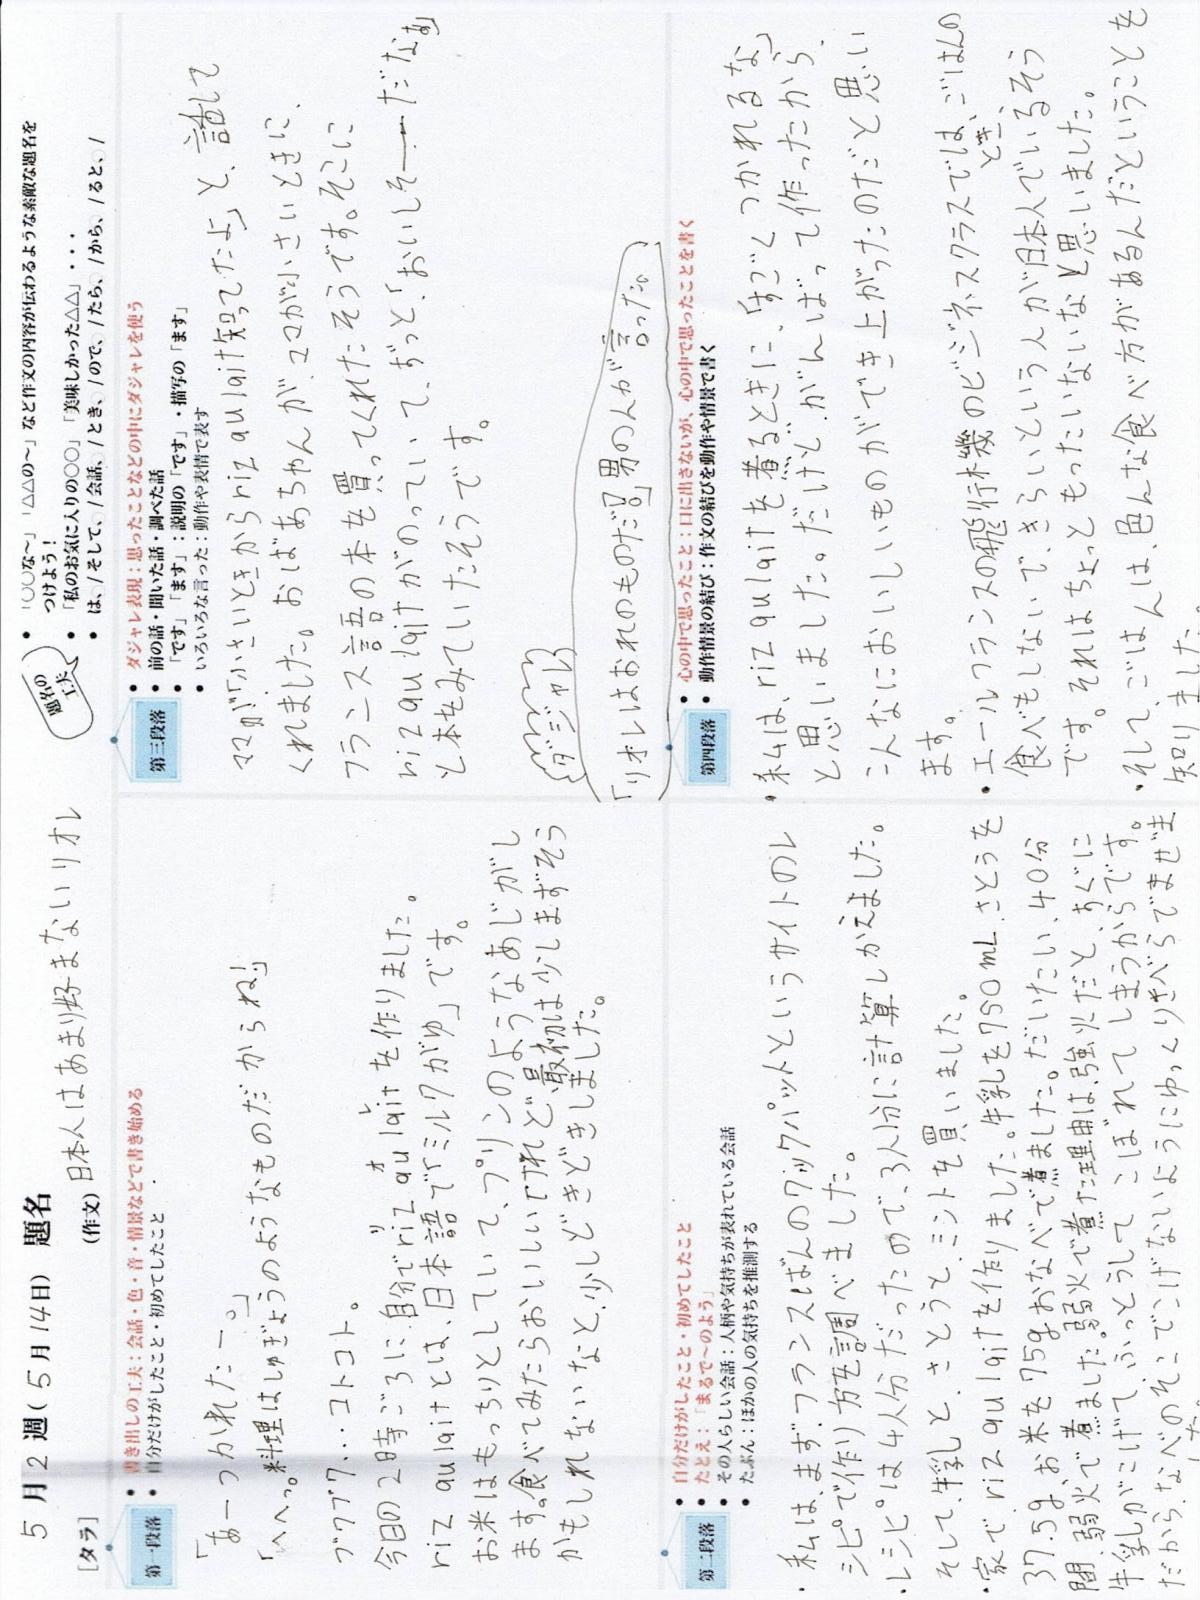 5月2週(5月14日) 題名
[タラ]
(作文) 日本人はあまり好まないリオレ
題名の工夫
• 「○○な〜」「△△の〜」など作文の内容が伝わるような素敵な題名を
つけよう！
• 「私のお気に入りの○○」「美味しかった△△」・・・
• は、/そして、/会話、/とき、/ので、/たら、/から、/ると、/
第一段落
• 書き出しの工夫：会話・色・音・情景などで書き始める
• 自分だけがしたこと・初めてしたこと
「あーつかれたー。」
「へへっ。料理はしゅぎょうのようなものだからね!」
ブクブク...コトコト。
今日の2時ごろに自分でriz au laitを作りました。
リ オ レ
riz au laitとは、日本語で「ミルクがゆ」です。
お米はもっちりとしていて、プリンのようなあじがし
ます。食べてみたらおいしいけれど、最初は少しまずそう
かもしれないなと、少しどきどきしました。
第二段落
• 自分だけがしたこと・初めてしたこと
• たとえ：「まるで〜のよう」
• その人らしい会話：人柄や気持ちが表れている会話
• たぶん：ほかの人の気持ちを推測する
・私は、まず、フランスばんのクックパットというサイトのレ
シピで作り方を調べました。
・レシピは4人分だったので、3人分に計算しかえました。
そして、牛乳と、さとうと、ミントを買いました。
・家でriz au laitを作りました。牛乳を750mL、さとうを
37.5g、お米を75gおなべで煮ました。だいたい、40分
間、弱火で煮ました。弱火で煮た理由は、強火だと、すぐに
牛乳がこげて、ふっとうして こぼれて しまうからです。
だから、なべのそこでこげないようにゆっくり木べらでまぜま
した。
第三段落
• ダジャレ表現：思ったことなどの中にダジャレを使う
• 前の話・聞いた話・調べた話
• 「です」「ます」：説明の「です」・描写の「ます」
• いろいろな言った：動作や表情で表す
ママが「小さいときからriz au lait知ってたよ」と、話して
くれました。おばあちゃんが、ママが小さいときに、
フランス語の本を買ってくれたそうです。そこに
riz au laitがのっていて、ずっと、「おいしそーだなぁ」
と本をみていたそうです。
ダジャレ
「リオレはおれのものだ!!」男の人が言った。
第四段落
• 心の中で思ったこと：口に出さないが、心の中で思ったことを書く
• 動作情景の結び：作文の結びを動作や情景で書く
・私は、riz au laitを煮るときに、「すごくつかれるな」
と思いました。だけど、がんばって作ったから、
こんなにおいしいものができ上がったのだと思い
ます。
・エールフランスの飛行機のビジネスクラスでは、ごはんの
とき、
食べもしないで、きらいという人が日本人でいるそう
です。それはちょっともったいないなと思いました。
・そして、ごはんは、色んな食べ方があるんだということを
知りました。